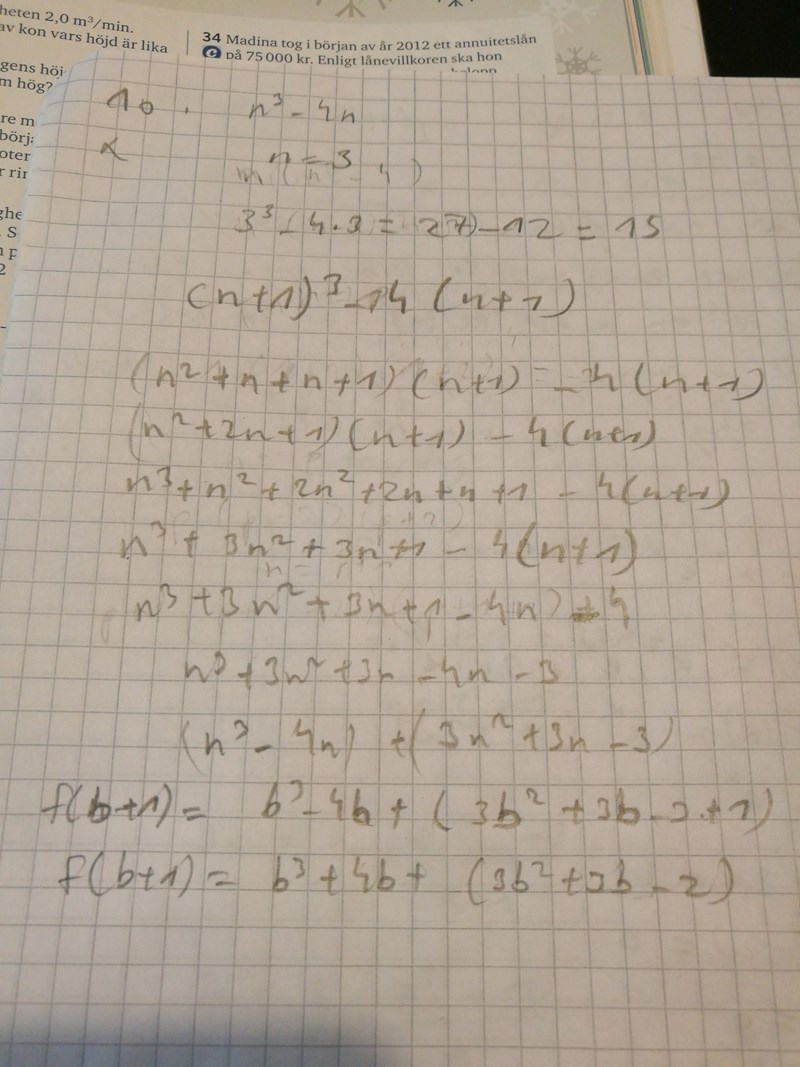 heten 2,0 m³/min.
av kon vars höjd är lika
gens höj
m hög?
re m
börj
oter
r rir
ghe
. S
n p
2
34 Madina tog i början av år 2012 ett annuitetslån
på 75 000 kr. Enligt lånevillkoren ska hon
10.
n³ - 4n
n = 3
3³ - 4·3 = 27 - 12 = 15
(n+1)³ - 4(n+1)
(n² + n + n + 1)(n+1) - 4(n+1)
(n² + 2n + 1)(n+1) - 4(n+1)
n³ + n² + 2n² + 2n + n + 1 - 4(n+1)
n³ + 3n² + 3n + 1 - 4(n+1)
n³ + 3n² + 3n + 1 - 4n - 4
n³ + 3n² + 3n - 4n - 3
(n³ - 4n) + (3n² + 3n - 3)
f(b+1) = b³ - 4b + (3b² + 3b - 3 + 1)
f(b+1) = b³ + 4b + (3b² + 3b - 2)